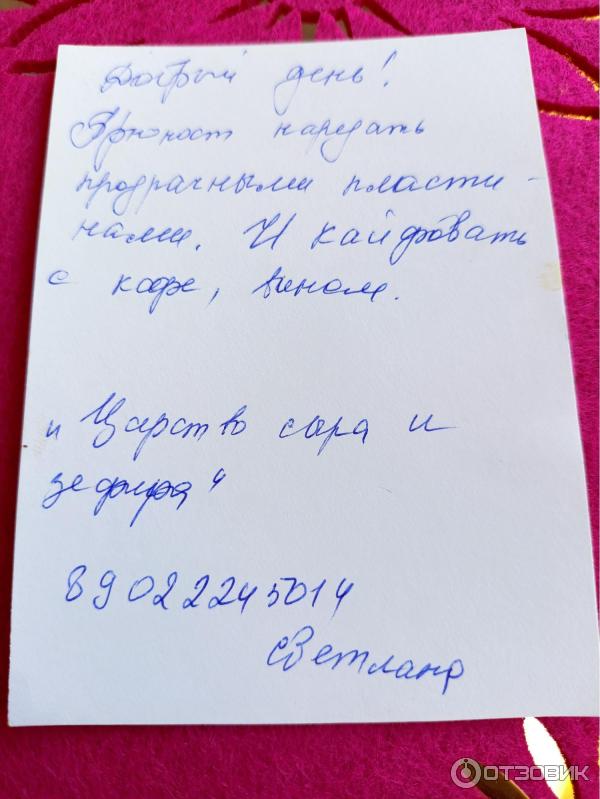 Добрый день!
Брюност нарезать
прозрачными пласти-
нами. И кайфовать
с кофе, вином.
"Царство сыра и
зефира"
89022245014
Светлана
ОТЗОВИК